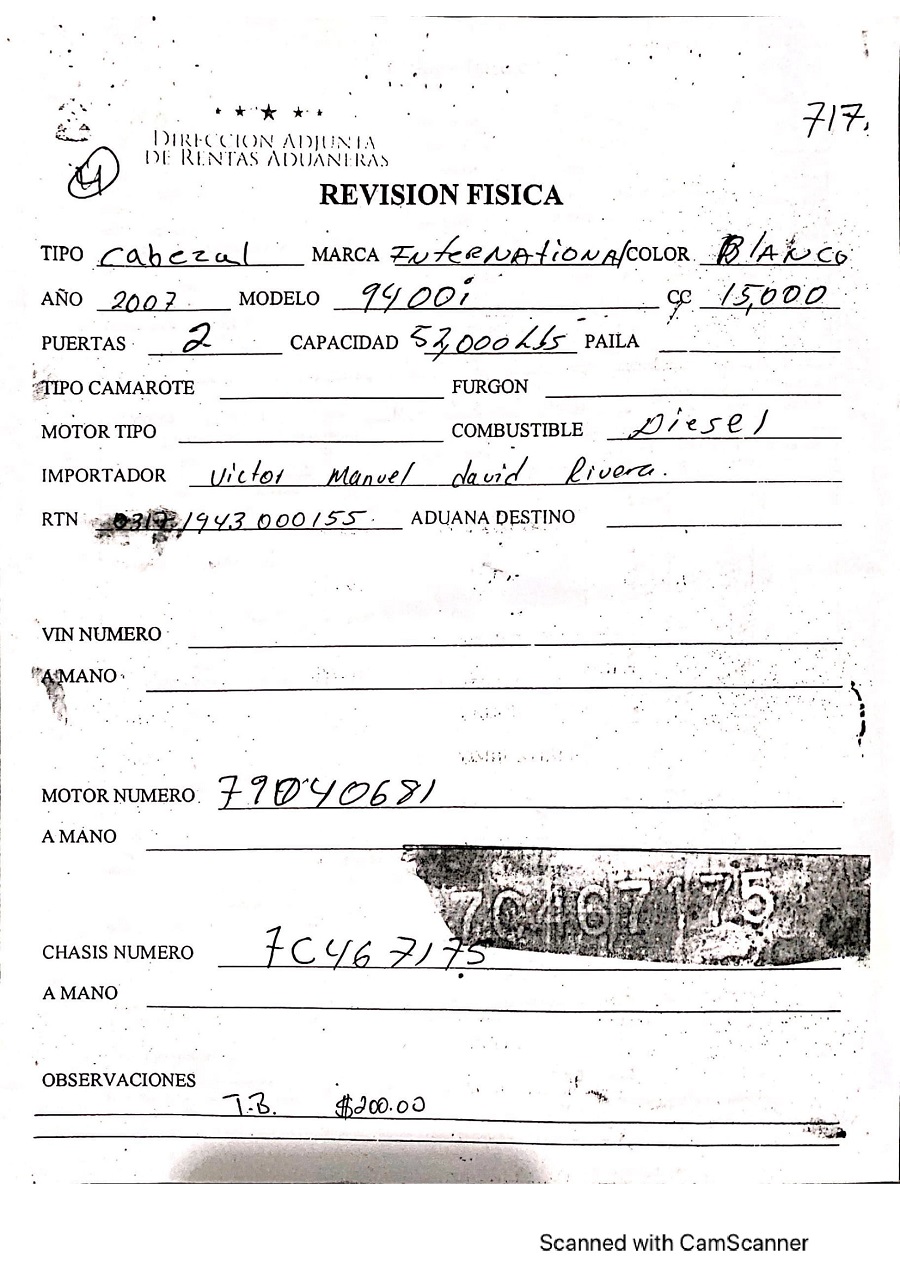 717.
DIRECCION ADJUNTA
DE RENTAS ADUANERAS
REVISION FISICA
TIPO Cabezal MARCA InternAtionAl COLOR BlANCO
AÑO 2007 MODELO 9400i CC 15,000
PUERTAS 2 CAPACIDAD 52,000 Lbs PAILA
TIPO CAMAROTE FURGON
MOTOR TIPO COMBUSTIBLE Diesel
IMPORTADOR Victor Manuel david Rivera.
RTN 0317 1943 000155. ADUANA DESTINO
VIN NUMERO
A MANO
MOTOR NUMERO 79040681
A MANO
7C467175
CHASIS NUMERO 7C467175
A MANO
OBSERVACIONES
T.B. $200.00
Scanned with CamScanner